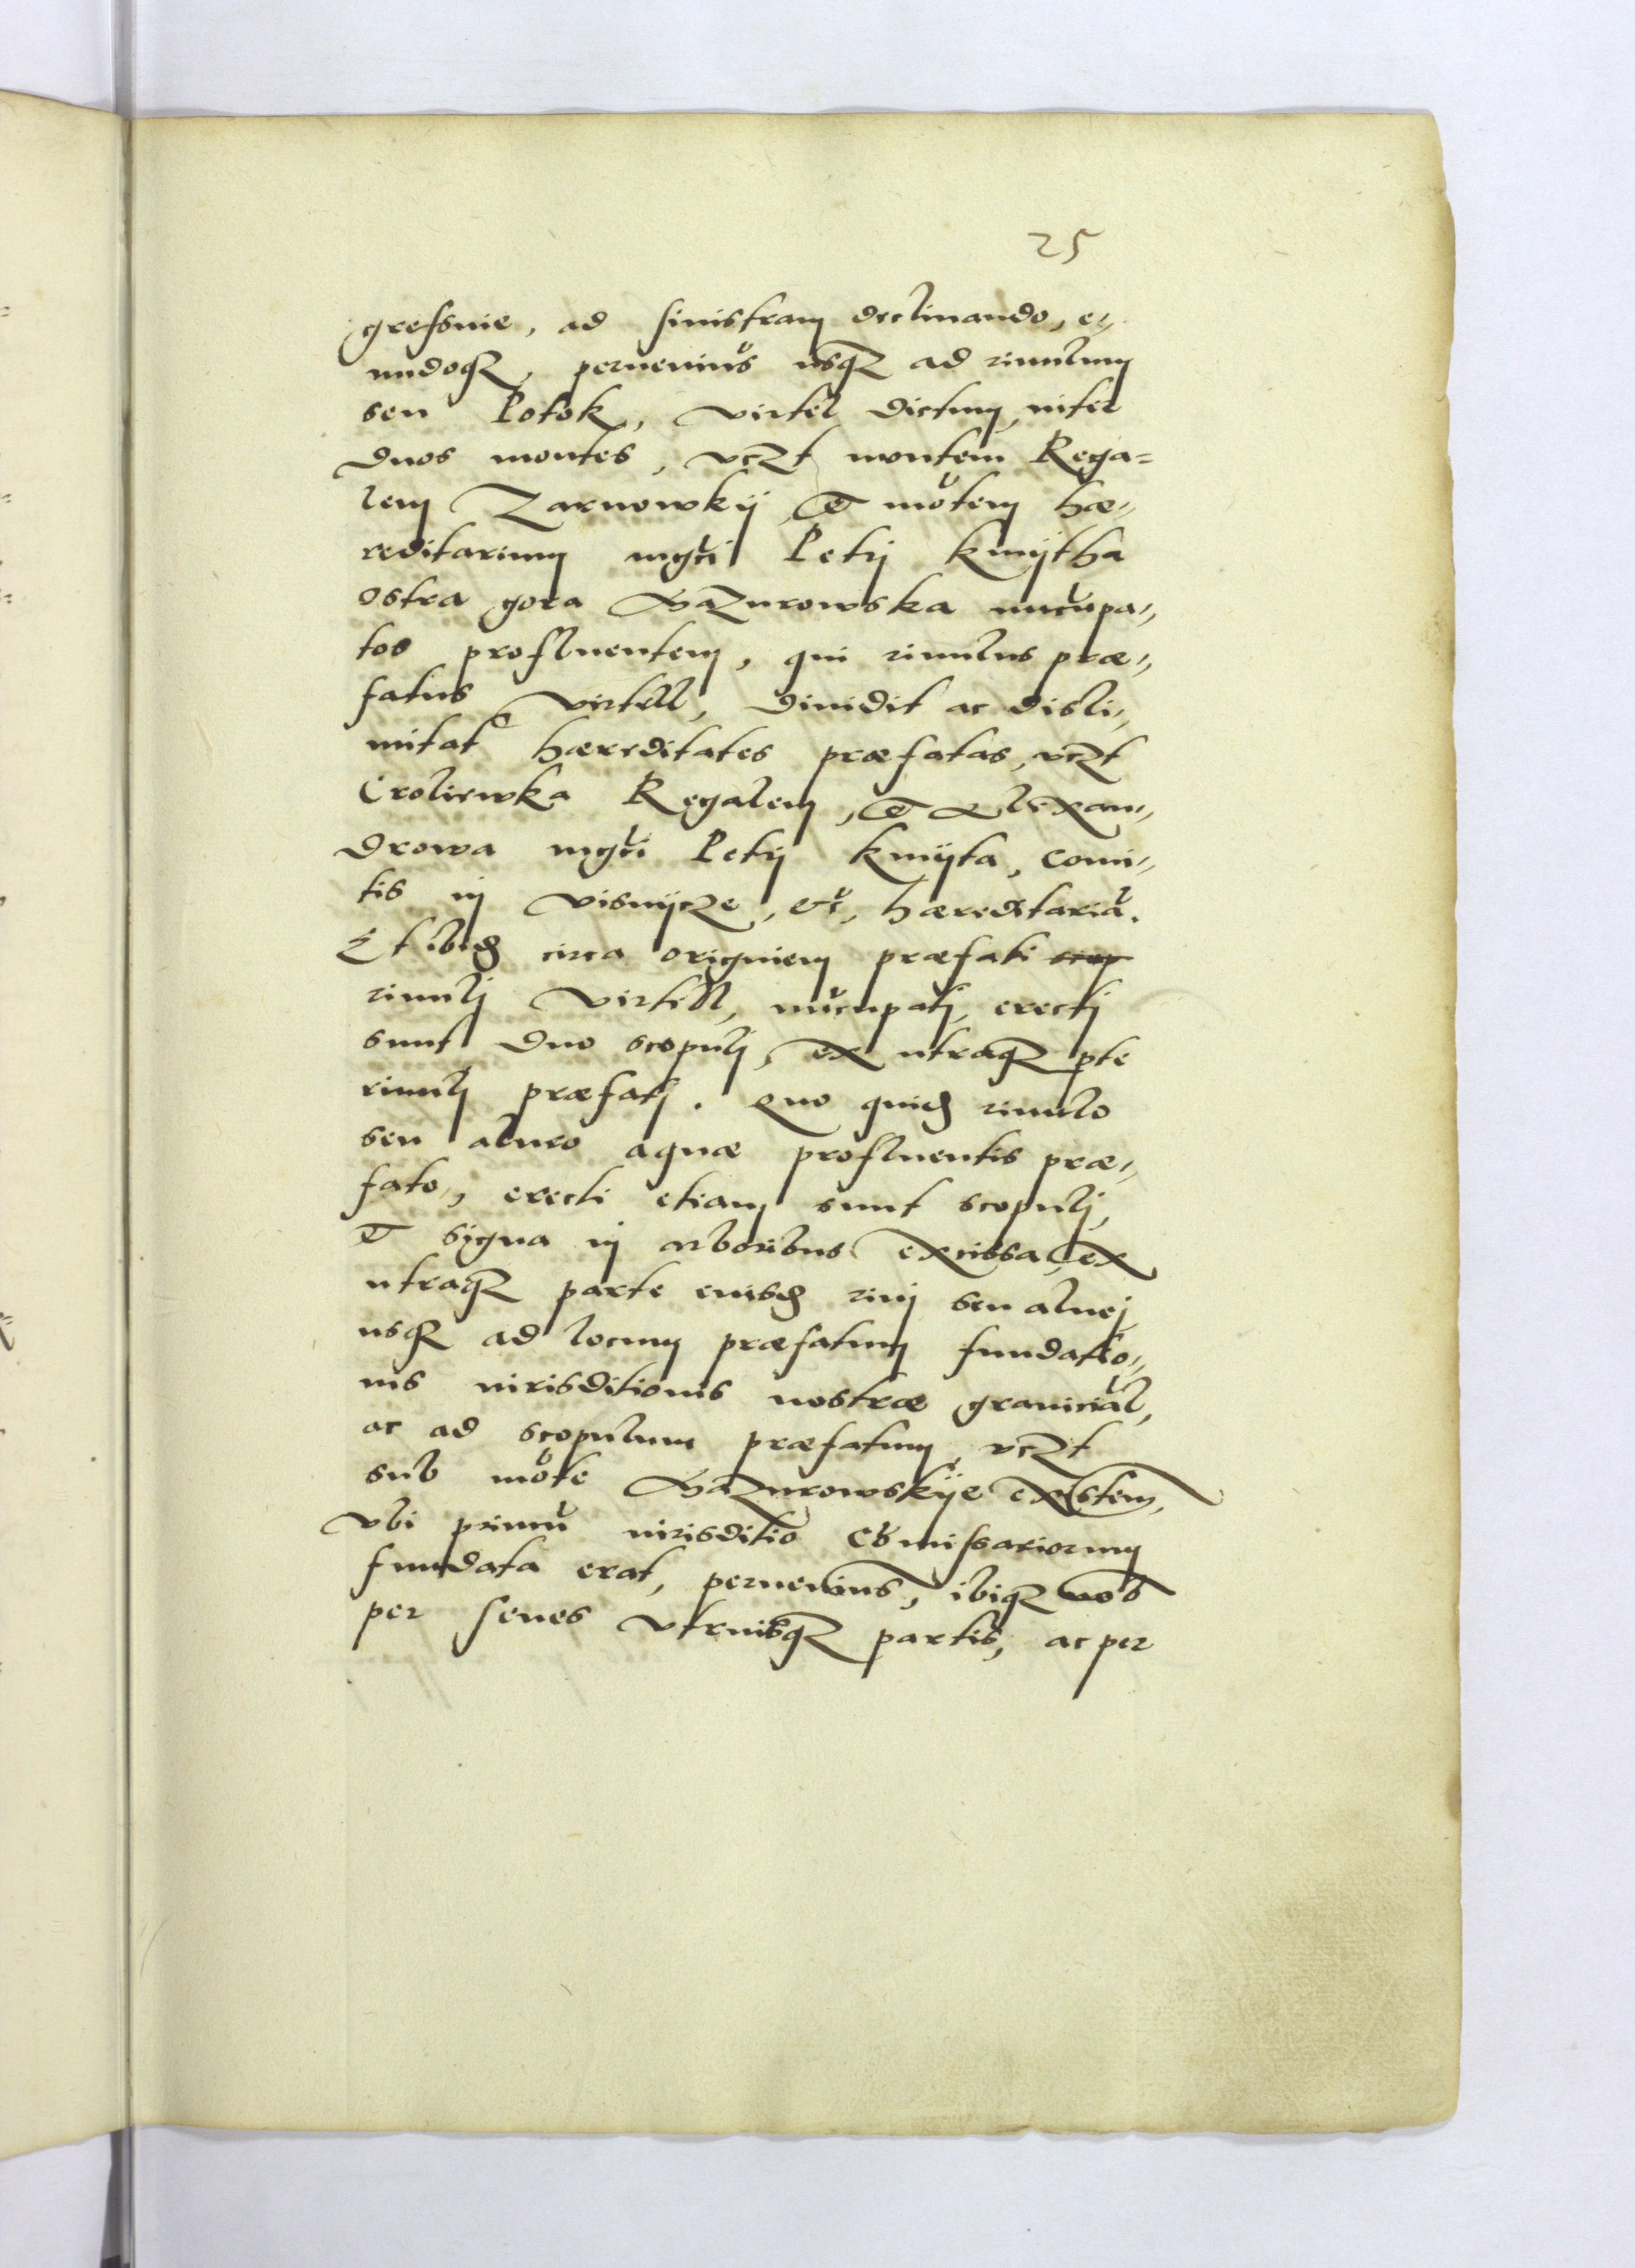 25
gressuie, ad sinistram declinando, e-
undoq, peruenim9 usq ad riuulum
seu Potok, Virtel dictum, inter
duos montes, vczt montem Rega=
lem Zarnowkij et mōtem hæ-
reditarium mgci Petri Kmijtha
ostra gora Mazurowska nucupa-
tos profluentem, qui riuulus præ-
fatus Virtell, diuidit ac disli-
mitat hæreditates præfatas, vczt
Croliewka Regalem, et Alexan-
drowa mgci Petri Kmijta, Comi-
tis in Visnijcze, etc, hæreditariā.
Et ibid circa originem præfati scop
riuulj Virtill, nucupatj, erectj
sunt duo scopulj, ex utraq pte
riuulj præfatj. Quo quid riuulo
seu alueo aquæ profluentis præ-
fato, erecti etiam sunt scopulj,
et signa in arboribus excissa, ex
utraq parte eiusd riuj seu aluej
usq ad locum præfatum fundatio-
nis iurisditionis nostræ granicial,
ac ad scopulum præfatum, vczt
sub mōte Mazurowskije existem,
vbi primū iurisditio Cōmissariorum
fundata erat, peruenimus, ibiq nob
per senes vtriusq partis, ac per